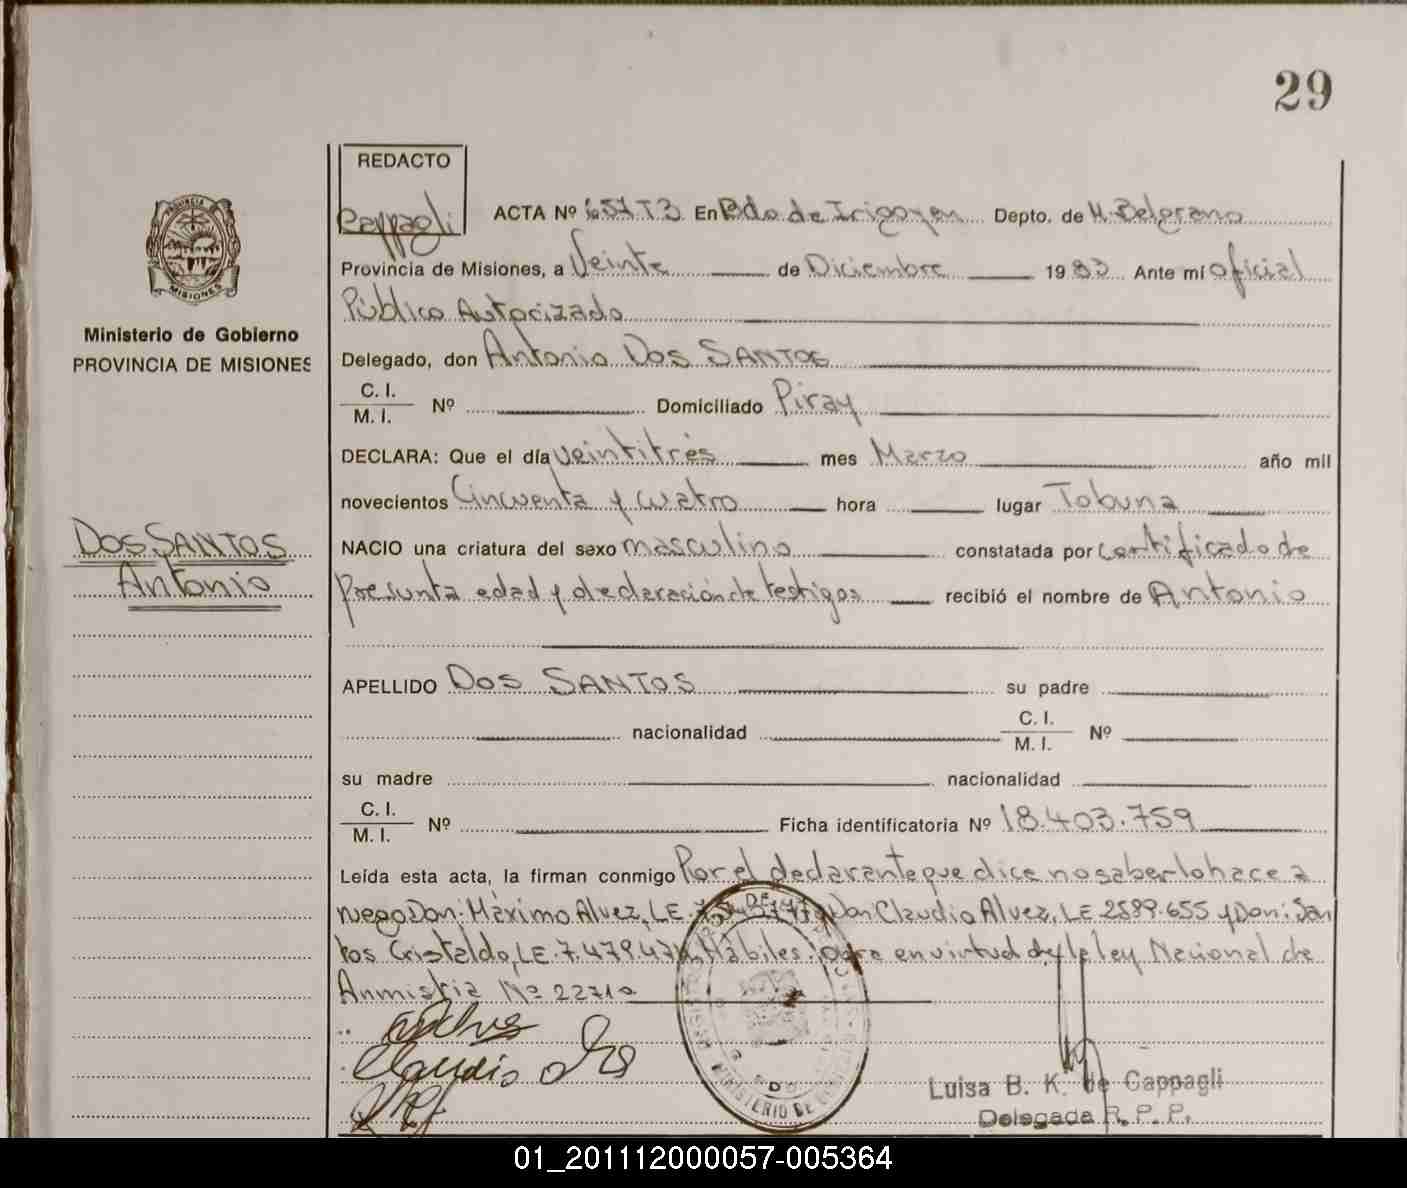 29
REDACTO
Cappagli
ACTA Nº 657 T3 En Bdo de Irigoyen Depto. de M. Belgrano
Provincia de Misiones, a Veinte de Diciembre 1983 Ante mí oficial
Público Autorizado
Delegado, don Antonio Dos SANTOS
C. I.
M. I. Nº Domiciliado Piray
DECLARA: Que el día veintitrés mes Marzo año mil
novecientos Cincuenta y cuatro hora lugar Tobuna
NACIO una criatura del sexo masculino constatada por Certificado de
Presunta edad y declaración de testigos recibió el nombre de Antonio
APELLIDO DOS SANTOS su padre
nacionalidad C. I.
M. I. Nº
su madre nacionalidad
C. I.
M. I. Nº Ficha identificatoria Nº 18.403.759
Leída esta acta, la firman conmigo Por el declarante que dice no saber lo hace a
ruego Don: Máximo Alvez, LE. y Don Claudio Alvez, LE 2589.655 y Don: San
tos Cristaldo, LE. 7.479.47 Hábiles. en virtud de la ley Nacional de
Anmistia Nº 22710
Claudio
Luisa B. K. de Cappagli
Delegada R. P. P.
PROVINCIA
MISIONES
Ministerio de Gobierno
PROVINCIA DE MISIONES
DOS SANTOS
Antonio
MINISTERIO DE
01_201112000057-005364